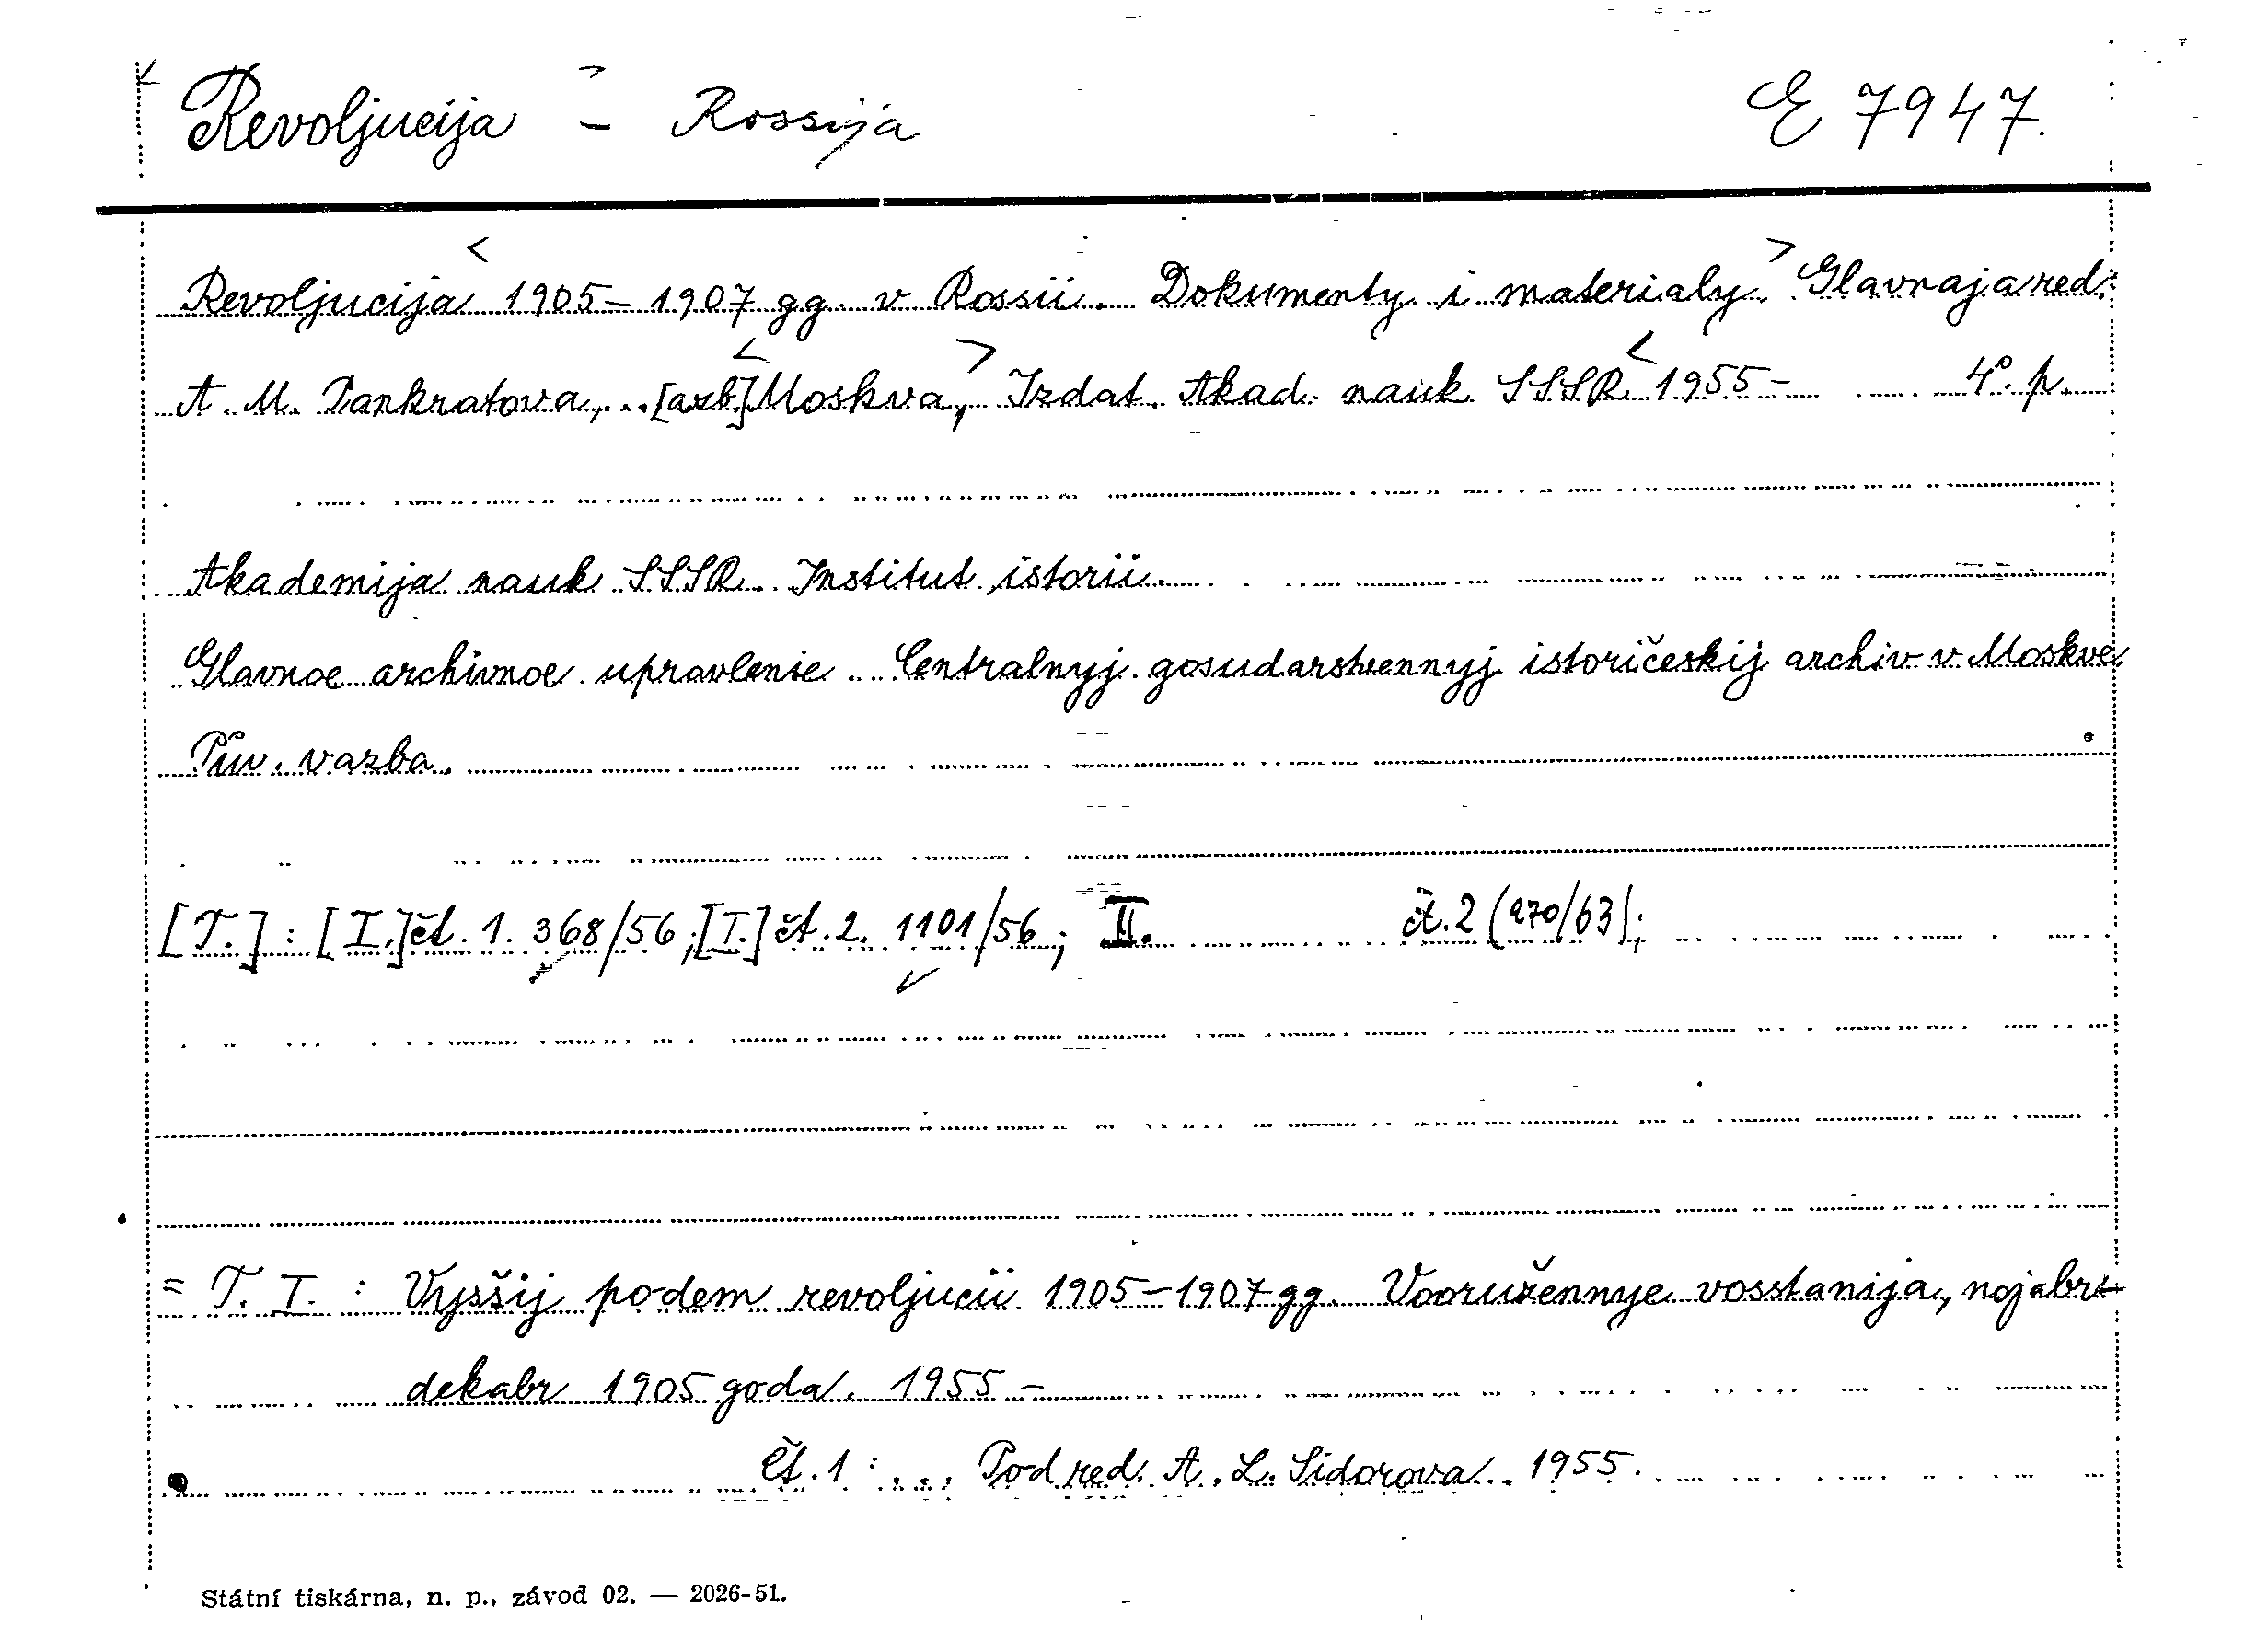 Revoljucija - Rossija E 7947.
Revoljucija < 1905-1907 gg. v Rossii. Dokumenty i materialy. > Glavnaja red.
A. M. Pankratova,... [azb.] < Moskva, > Izdat. Akad. nauk SSSR < 1955- 4°. p.
Akademija nauk SSSR. Institut istorii.
Glavnoe archivnoe upravlenie. Centralnyj gosudarstvennyj istoričeskij archiv v Moskve.
Pův. vazba.
[T.] : [I.] čt. 1. 368/56; [I.] čt. 2. 1101/56; II. čt. 2 (270/63);
= T. I. : Vyjsšij podem revoljucii 1905-1907 gg. Vooružennye vosstanija, nojabr-
dekabr 1905 goda. 1955-
Čt. 1 : ... Pod red. A. L. Sidorova. 1955.
Státní tiskárna, n. p., závod 02. — 2026-51.